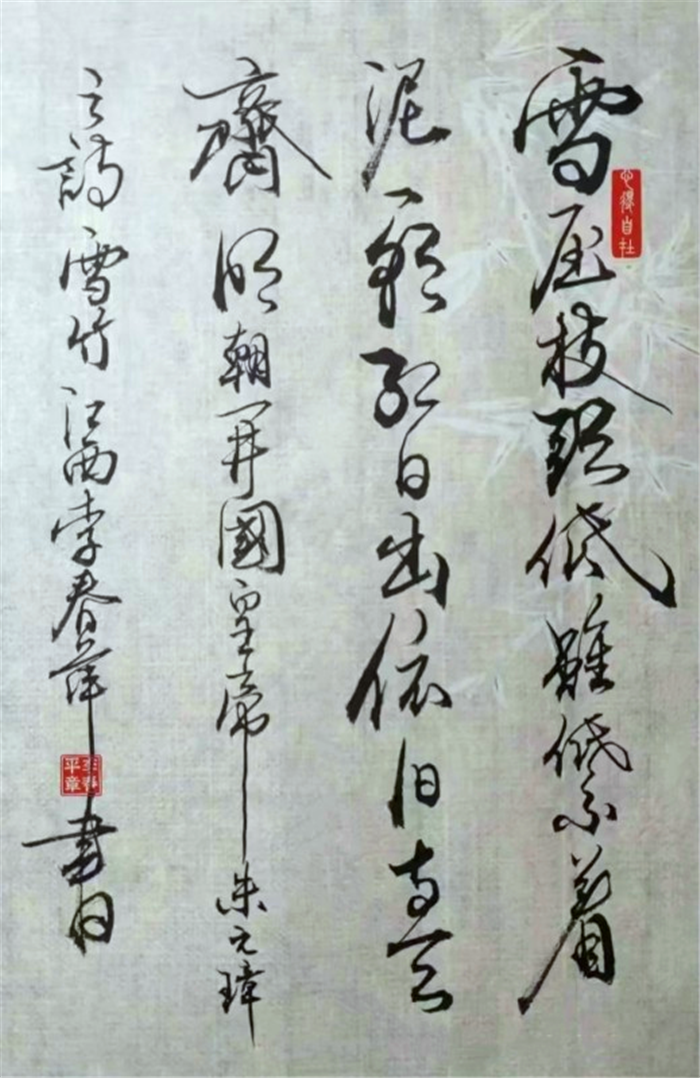 雪压枝头低虽低不着
泥一朝红日出依旧与天
齊明朝開國皇帝朱元璋
之詩雪竹江西李春萍書
李春平章